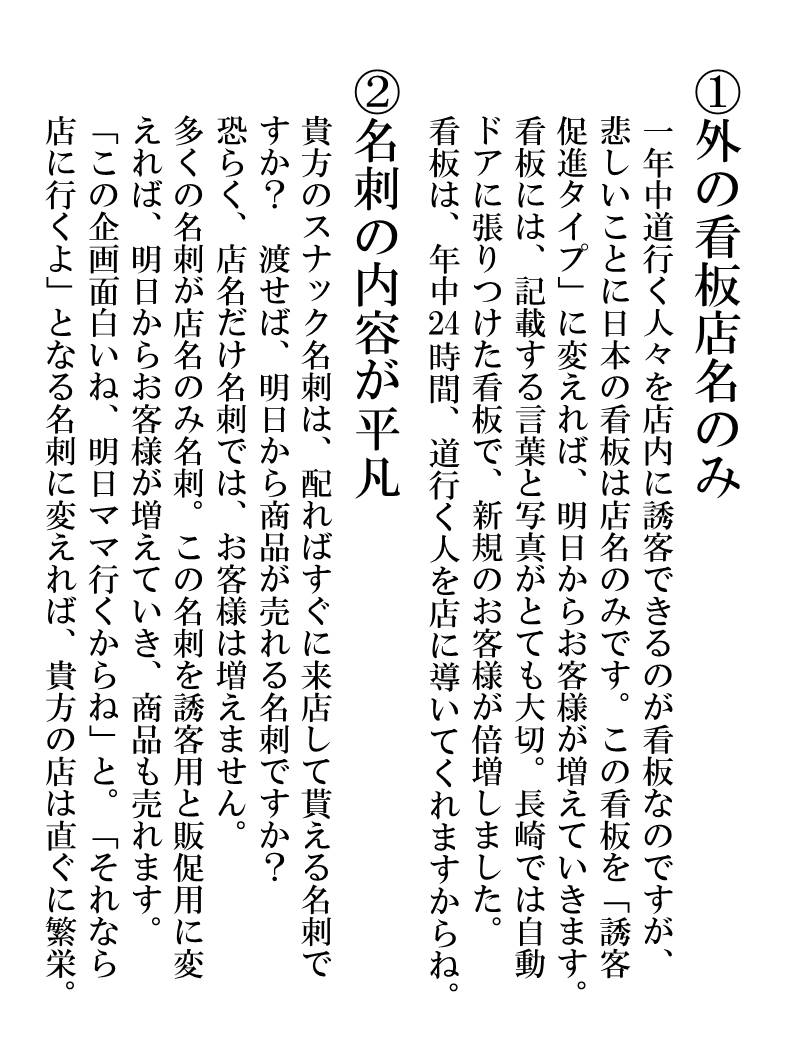 ①外の看板店名のみ
一年中道行く人々を店内に誘客できるのが看板なのですが、
悲しいことに日本の看板は店名のみです。この看板を「誘客
促進タイプ」に変えれば、明日からお客様が増えていきます。
看板には、記載する言葉と写真がとても大切。長崎では自動
ドアに張りつけた看板で、新規のお客様が倍増しました。
看板は、年中24時間、道行く人を店に導いてくれますからね。
②名刺の内容が平凡
貴方のスナック名刺は、配ればすぐに来店して貰える名刺で
すか？　渡せば、明日から商品が売れる名刺ですか？
恐らく、店名だけ名刺では、お客様は増えません。
多くの名刺が店名のみ名刺。この名刺を誘客用と販促用に変
えれば、明日からお客様が増えていき、商品も売れます。
「この企画面白いね、明日ママ行くからね」と。「それなら
店に行くよ」となる名刺に変えれば、貴方の店は直ぐに繁栄。